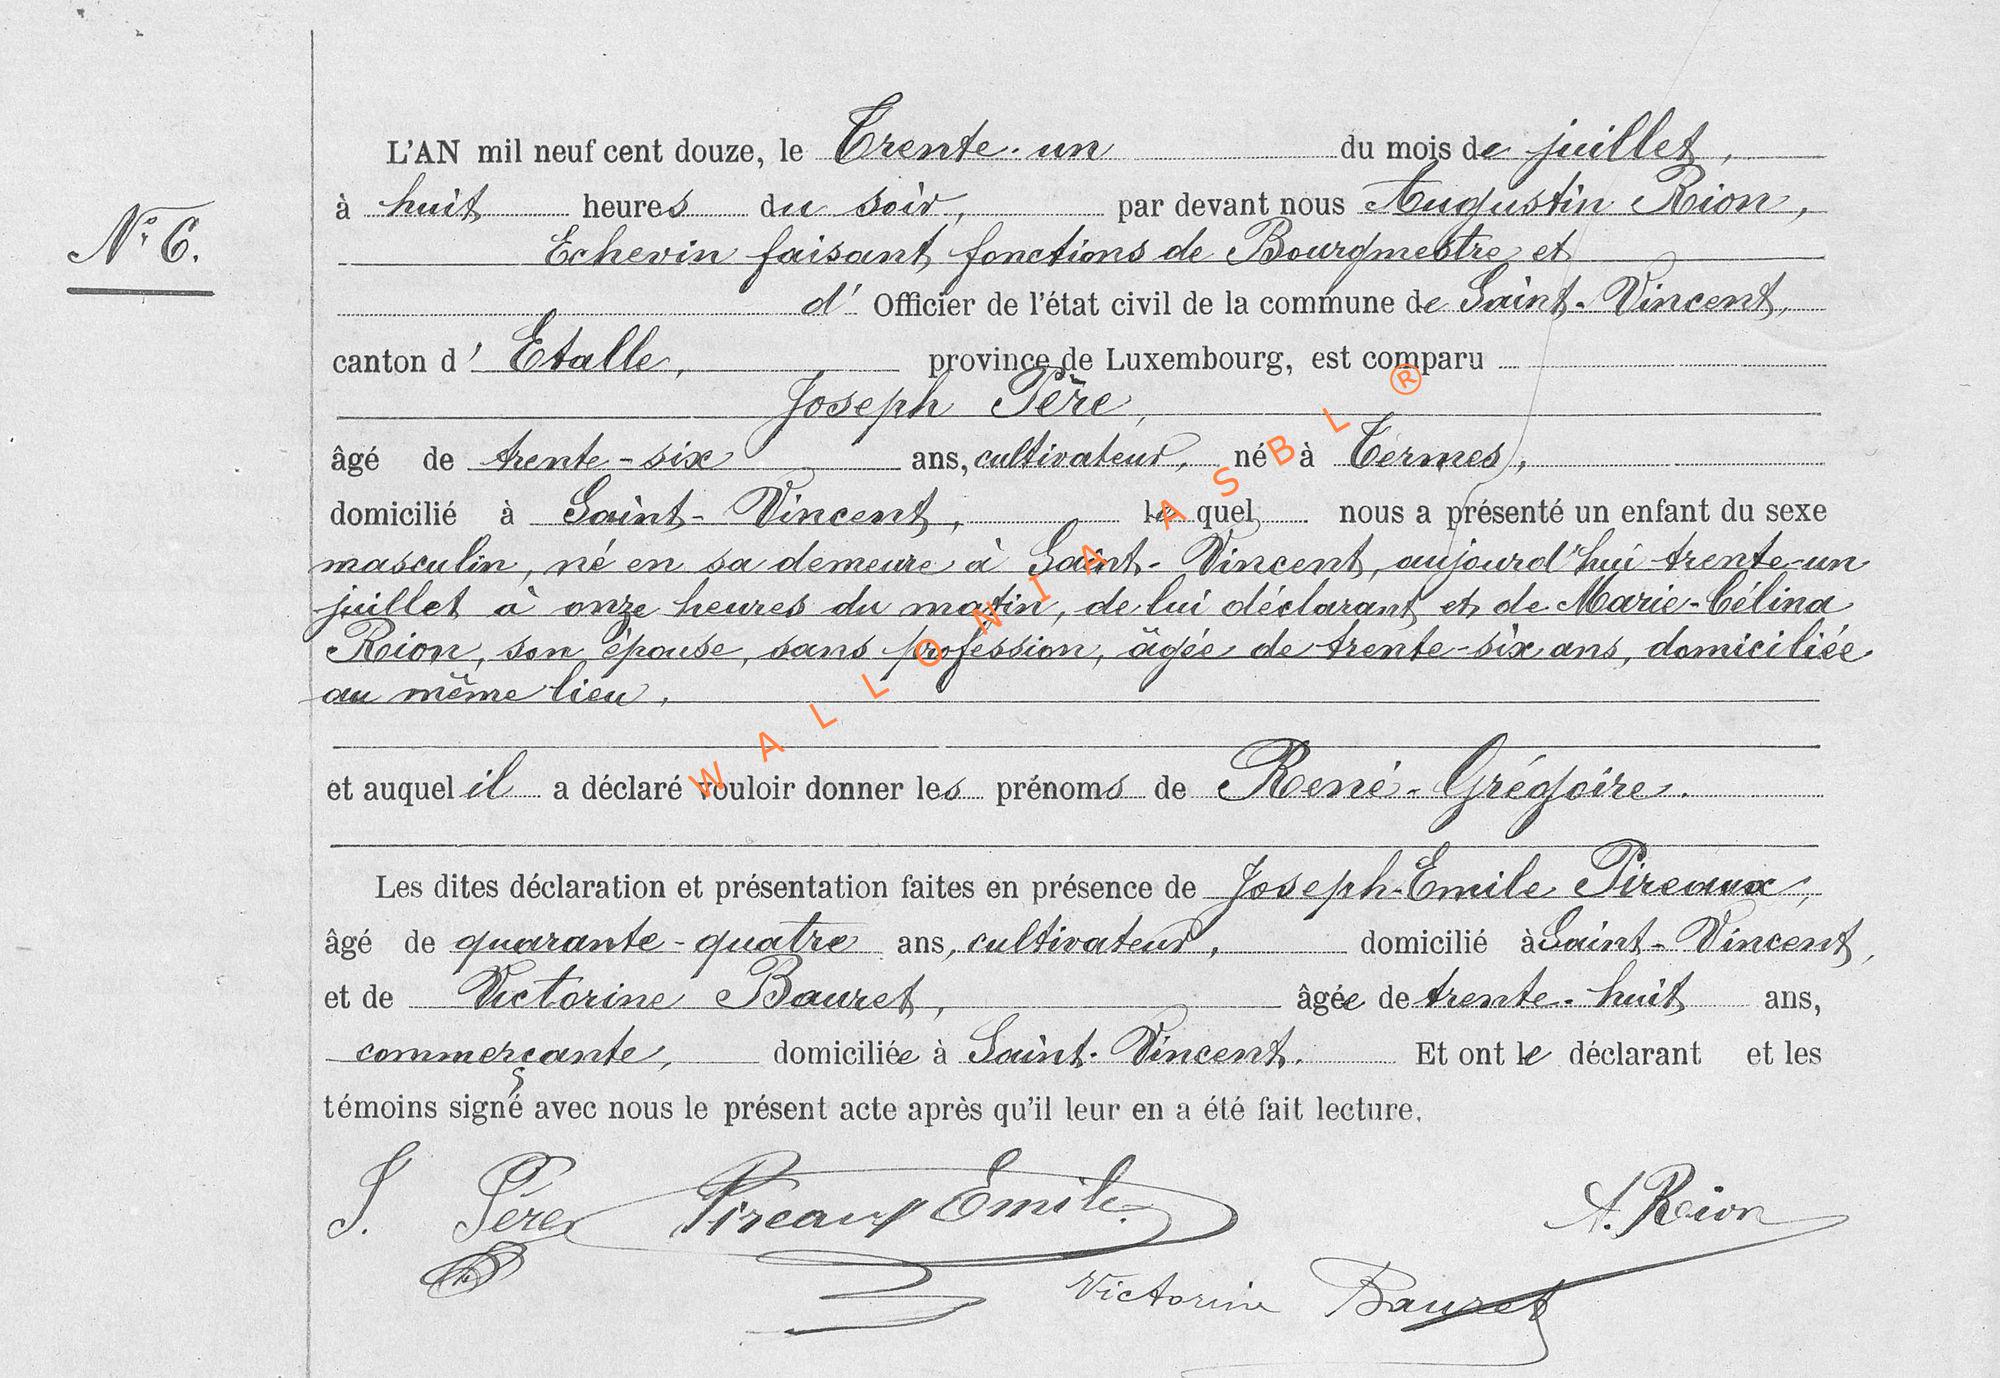 N° 6.
L'AN mil neuf cent douze, le Trente-un du mois de juillet,
à huit heures du soir, par devant nous Augustin Rion,
Echevin faisant fonctions de Bourgmestre et
d' Officier de l'état civil de la commune de Saint-Vincent,
canton d' Etalle, province de Luxembourg, est comparu
Joseph Père,
âgé de trente-six ans, cultivateur, né à Termes,
domicilié à Saint-Vincent, lequel nous a présenté un enfant du sexe
masculin, né en sa demeure à Saint-Vincent, aujourd'hui trente-un
juillet à onze heures du matin, de lui déclarant et de Marie-Célina
Rion, son épouse, sans profession, âgée de trente-six ans, domiciliée
au même lieu,
et auquel il a déclaré vouloir donner les prénoms de René-Grégoire.
Les dites déclaration et présentation faites en présence de Joseph-Emile Pireaux,
âgé de quarante-quatre ans, cultivateur, domicilié à Saint-Vincent,
et de Victorine Bauret, âgée de trente-huit ans,
commerçante, domiciliée à Saint-Vincent. Et ont le déclarant et les
témoins signé avec nous le présent acte après qu'il leur en a été fait lecture.
J. Père Pireaux Emile A. Rion
Victorine Bauret
WALLONIA ASBL ®